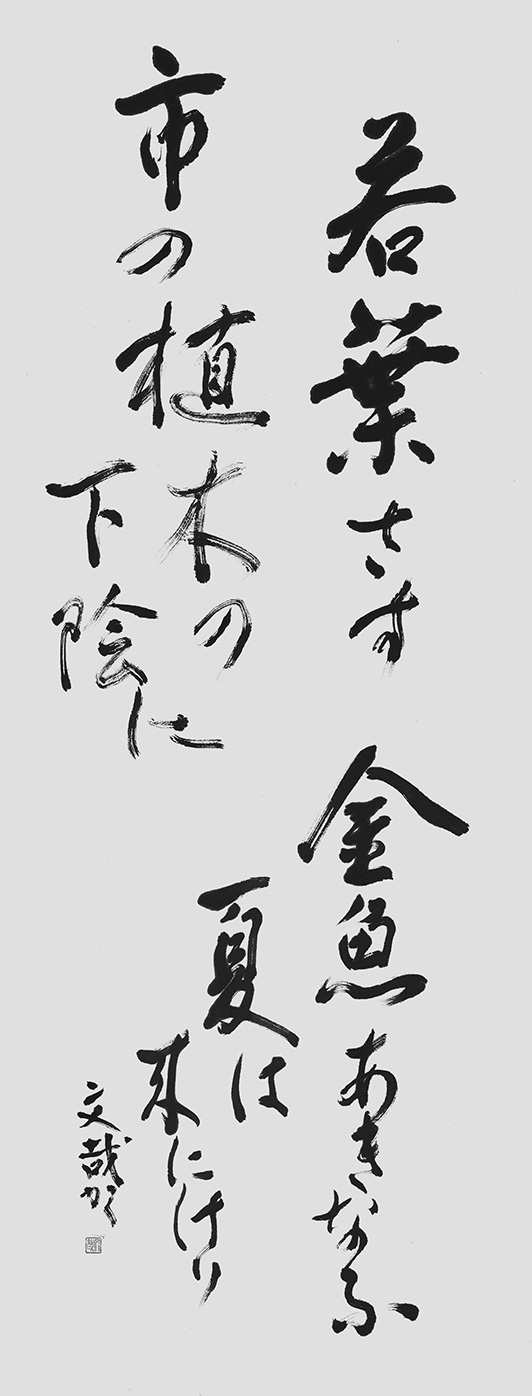 若葉さす
市の植木の
下陰に
金魚あきなふ
夏は
来にけり
文哉かく